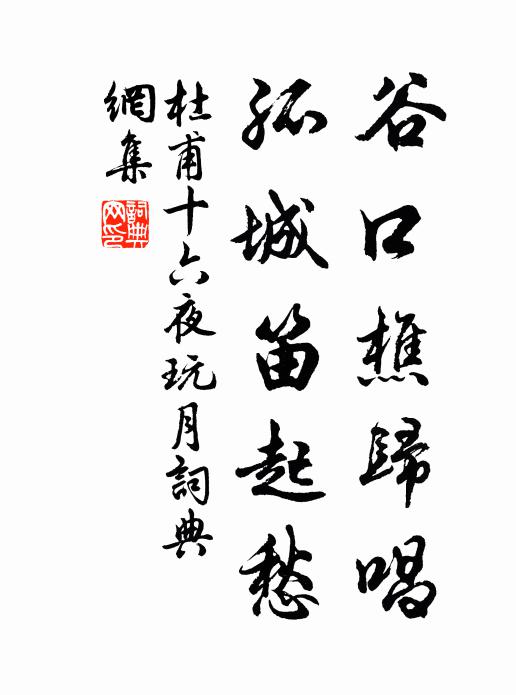 谷口樵歸唱
孤城笛起愁
杜甫十六夜玩月詞典
網集
詞典網印